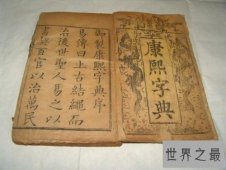 御製康熙字典序
易傳曰上古結繩而
治後世聖人易之以
書契百官以治萬民
康熙字典
世界之最